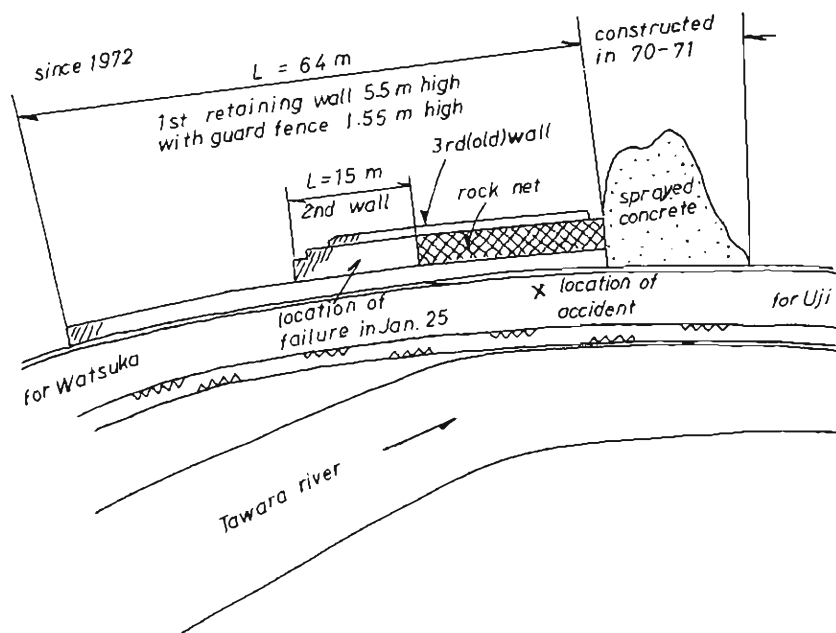 since 1972
L = 64 m
1st retaining wall 5.5 m high
with guard fence 1.55 m high
constructed
in 70-71
3rd(old)wall
L=15 m
2nd wall
rock net
sprayed
concrete
location of
failure in Jan. 25
x location of
accident
for Uji
for Watsuka
Tawara river